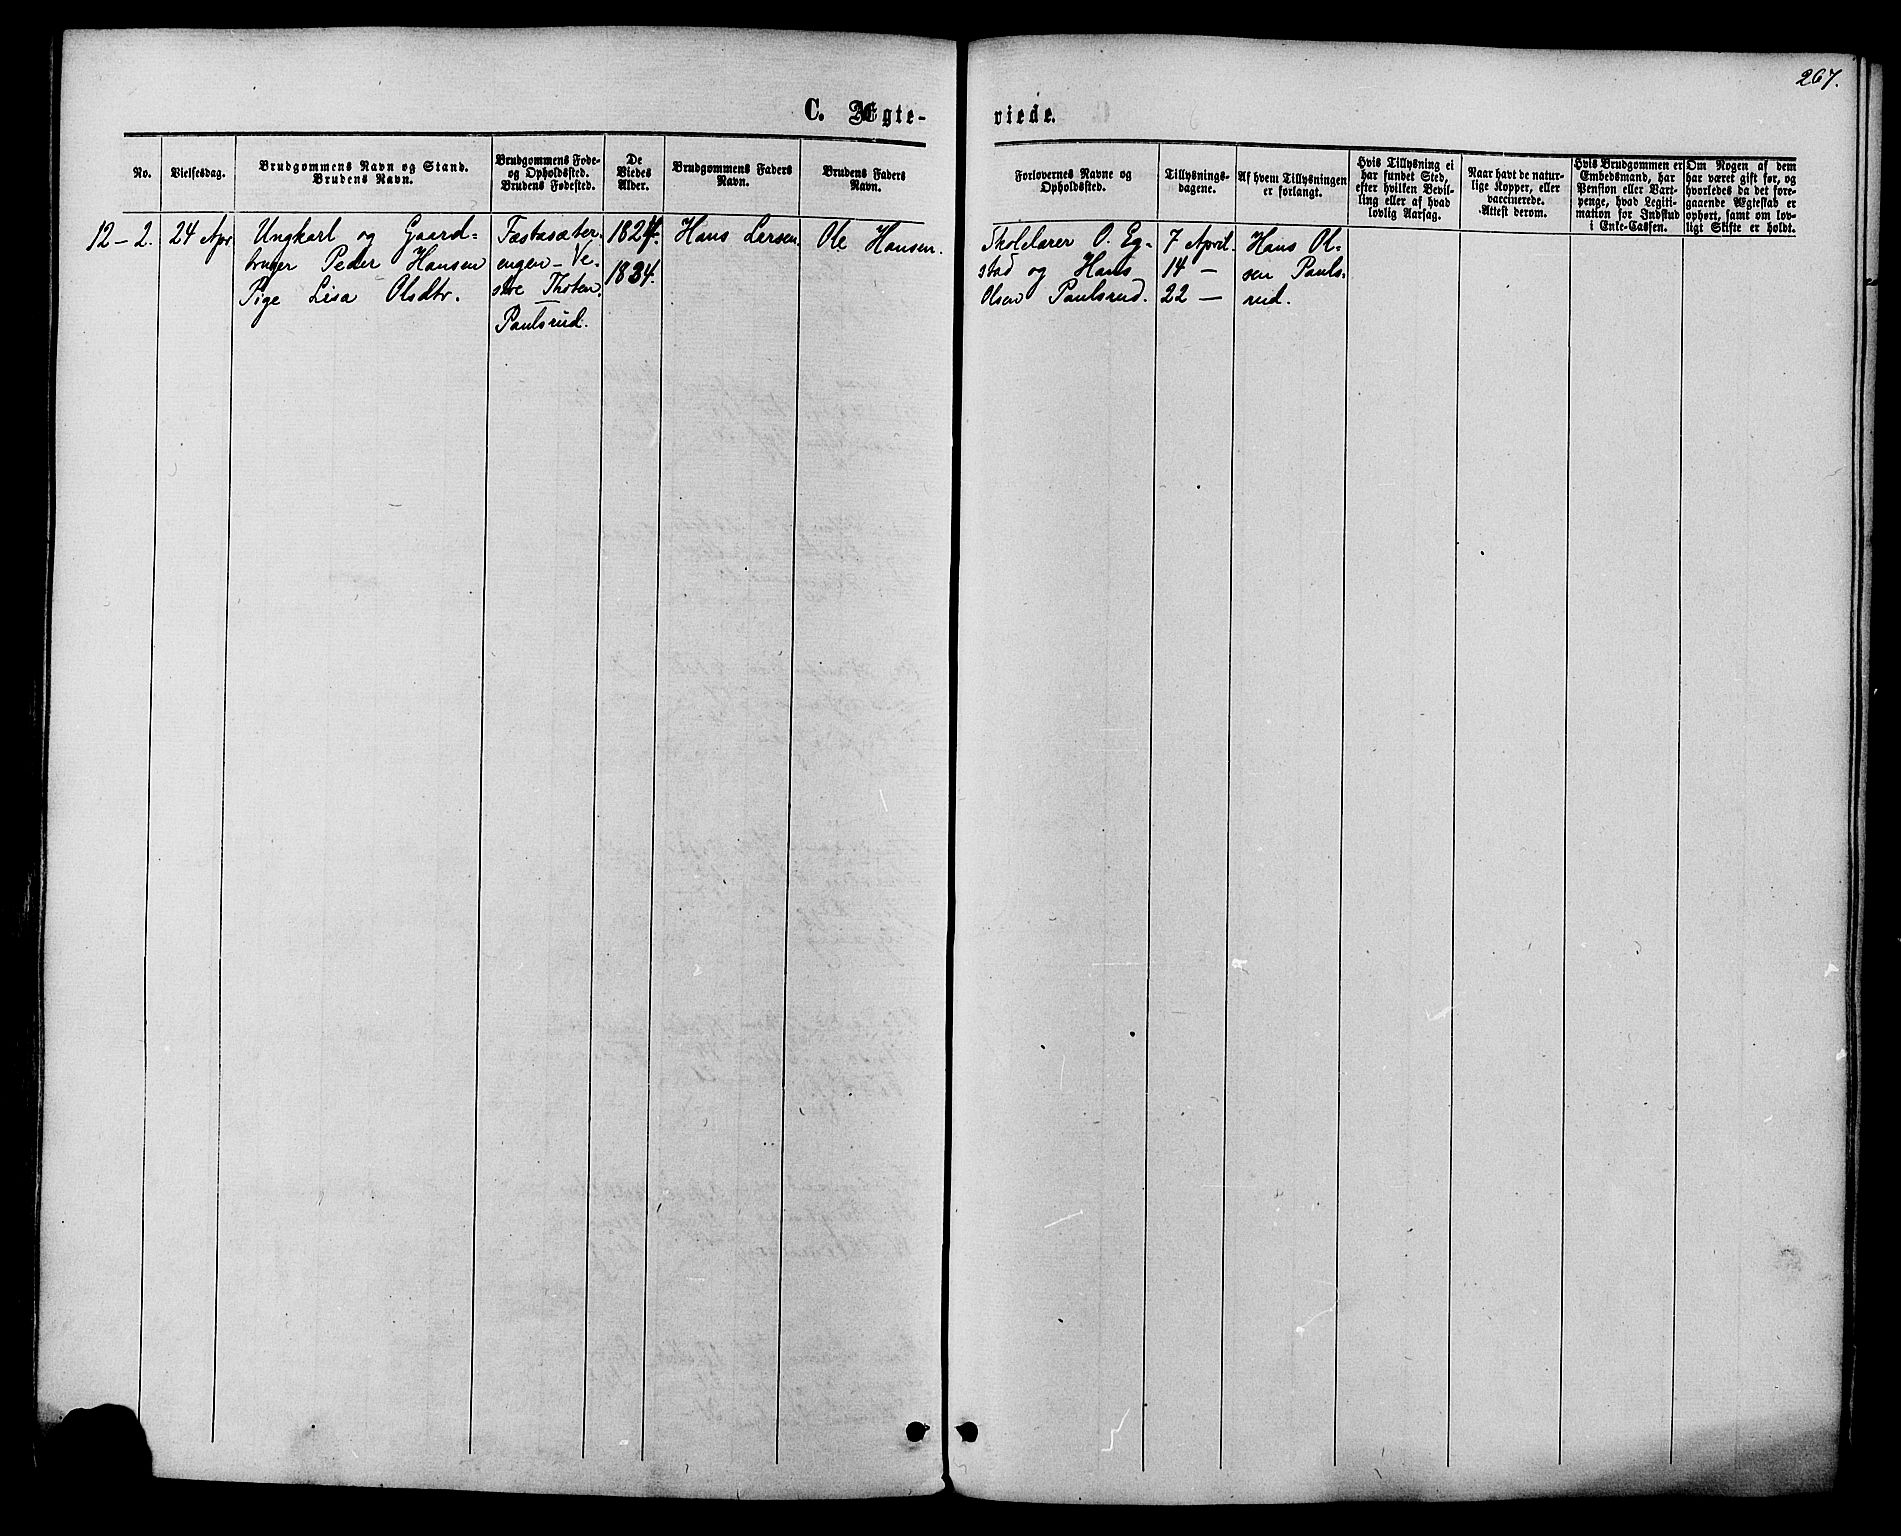 267.
C. Ægte-
viede.
No.
Vielsesdag.
Brudgommens Navn og Stand.
Brudens Navn.
Brudgommens Føde-
og Opholdssted.
Brudens Fødested.
De
Viedes
Alder.
Brudgommens Faders
Navn.
Brudens Faders
Navn.
Forlovernes Navne og
Opholdssted.
Tillysnings-
dagene.
Af hvem Tillysningen
er forlangt.
Hvis Tillysning ei
har fundet Sted,
efter hvilken Bevil-
ling eller af hvad
lovlig Aarsag.
Naar havt de natur-
lige Kopper, eller
vaccinerede.
Attest derom.
Hvis Brudgommen er
Embedsmand, har
Pension eller Vart-
penge, hvad Legiti-
mation for Indskud
i Enke-Cassen.
Om Nogen af dem
har været gift før, og
hvorledes da det fore-
gaaende Ægteskab er
ophørt, samt om lov-
ligt Skifte er holdt.
12 – 2.
24 Apr
Ungkarl og Gaard-
bruger Peder Hansen
Pige Lisa Olsdtr.
Fæstasæter
engen – Ve-
stre Thoten.
Paulsrud.
1824.
1834.
Hans Larsen.
Ole Hansen.
Skolelærer O. Eg-
stad og Hans
Olsen Paulsrud.
7 April.
14 –
22 –
Hans Ol-
sen Pauls-
rud.